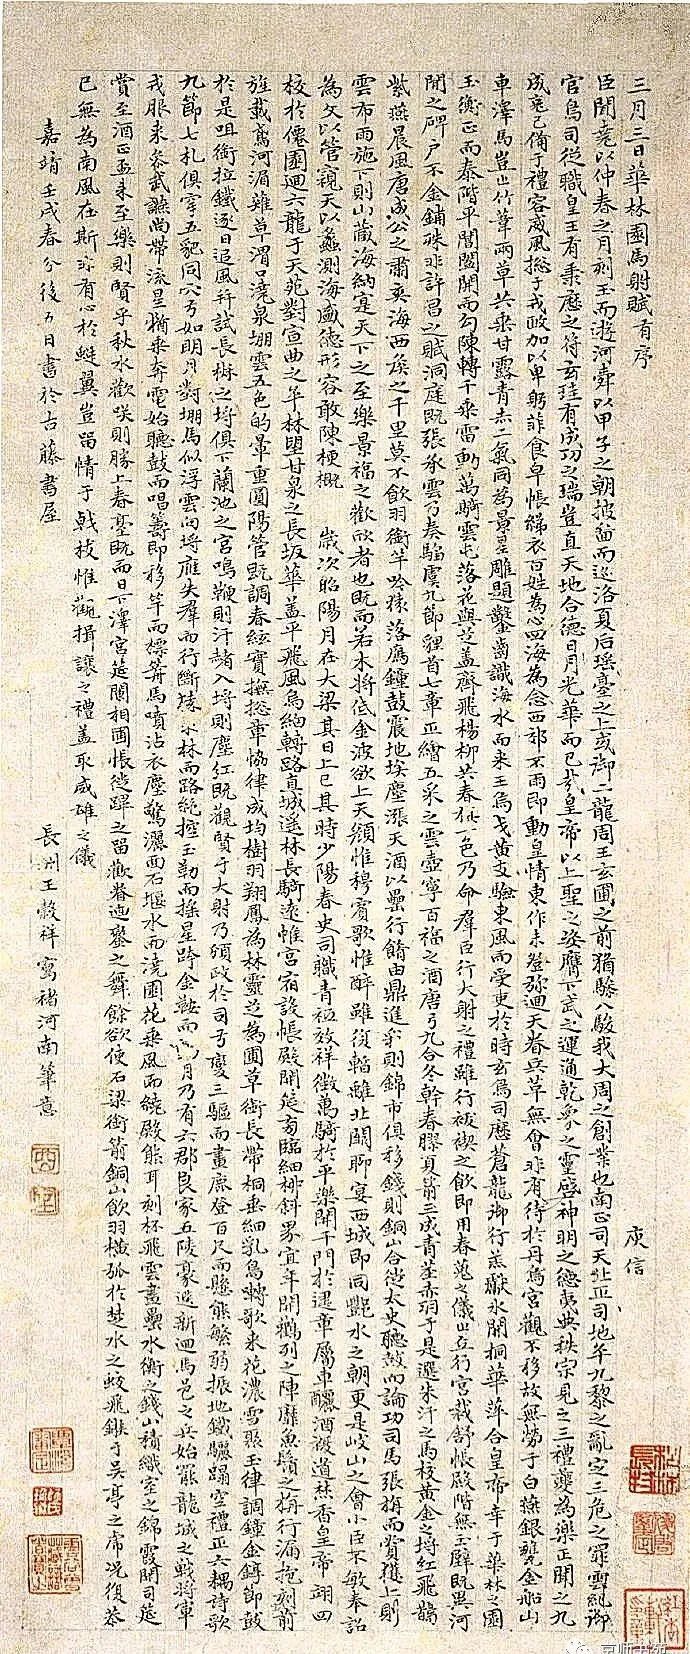 三月三日華林園馬射賦有序 庾信
臣聞堯以仲春之月刻玉而遊河舜以甲子之朝披圖而巡洛夏后瑤臺之上或御二龍周王玄圃之前猶驂八駿我大周之創業也南正司天北正司地平九黎之亂定三危之罪雲紀御
官鳥司從職皇王有秉歷之符玄珪有成功之瑞豈直天地合德日月光華而已哉皇帝以上聖之姿膺下武之運通乾象之靈啓神明之德夷典秩宗見之三禮夔為樂正聞之九
成克己備于禮容威風總于戎政加以卑躬菲食皁帳綈衣百姓為心四海為念西郊不雨即動皇情東作未登彌迴天眷兵革無會非有待於丹烏宮觀不移故無勞于白燕銀甕金船山
車澤馬豈止竹葦兩草共垂甘露青赤一氣同為景星雕題鑿齒識海水而來王烏弋黃支驗東風而受吏於時玄鳥司歷蒼龍御行羔獻冰開桐華萍合皇帝幸于華林之園
玉衡正而泰階平閶闔開而勾陳轉千乘雷動萬騎雲屯落花與芝蓋齊飛楊柳共春旗一色乃命羣臣行大射之禮雖行祓禊之飲即用春蒐之儀止立行宮裁舒帳殿階無玉璧既異河
閒之碑戶不金鋪殊非許昌之賦洞庭既張承雲乃奏騶虞九節貍首七章正繪五采之雲壺寧百福之酒唐弓九合冬幹春膠夏箭三成青莖赤羽于是選朱汗之馬校黃金之埒紅飛鵲
紫燕晨風唐成公之肅爽海西矦之千里莫不飲羽銜竿吟猨落鴈鐘鼓震地埃塵漲天酒以罍行餚由鼎進采則錦市俱移錢則銅山合徙太史聽鼓而論功司馬張旃而賞獲上則
雲布雨施下則山藏海納寔天下之至樂景福之歡欣者也既而若木將低金波欲上天顏惟穆賓歌惟醉雖復暫離北闕聊宴西城即同酆水之朝更是岐山之會小臣不敏奉詔
為文以管窺天以蠡測海盛德形容敢陳梗概 歲次昭陽月在大梁其日上巳其時少陽春史司職青祇效祥徵萬騎於平樂開千門於建章屬車釃酒複道焚香皇帝翊四
校於僊園迴六龍于天苑對宣曲之平林望甘泉之長坂華蓋平飛風烏細轉路直城遙林長騎遠帷宮宿設帳殿開筵旁臨細柳斜界宜年開鶴列之陣靡魚鬚之旃行漏抱刻前
旌載鳶河湄雜草渭口澆泉堋雲五色的暈重圓陽管既調春絃實撫總章恊律成均樹羽翔鳳為林靈芝為圃草銜長帶桐垂細乳鳥囀歌來花濃雪聚玉律調鐘金錞節鼓
於是咀銜拉鐵逐日追風并試長楸之埒俱下蘭池之宮鳴鞭則汗赭入埒則塵紅既觀賢于大射乃頒政於司弓變三驅而畫鹿登百尺而懸熊繁弱振地鐵驪蹋空禮正六耦詩歌
九節七札俱穿五豝同穴弓如明月對堋馬似浮雲向埒雁失羣而行斷猨求林而路絕控玉勒而搖星跨金鞍而月乃有六郡良家五陵豪選新迴馬邑之兵始罷龍城之戰將軍
戎服來參武讌尚帶流星猶乘奔電始聽鼓而唱籌即移竿而標箭馬噴沾衣塵驚灑面石堰水而澆園花乘風而繞殿熊耳刻杯飛雲畫罍水衡之錢山積織室之錦霞開司筵
賞至酒正杯來至樂則賢乎秋水歡笑則勝上春臺既而日下澤宮筵闌相圃悵徙蹕之留歡眷迴鑾之舞餘欲使石梁銜箭銅山飲羽橫弧於楚水之蛟飛鏃于吳亭之虎況復恭
已無為南風在斯非有心於蜓翼豈留情于戟枝惟觀揖讓之禮蓋取威雄之儀
嘉靖壬戌春分後五日書於古藤書屋 長洲王穀祥寫褚河南筆意